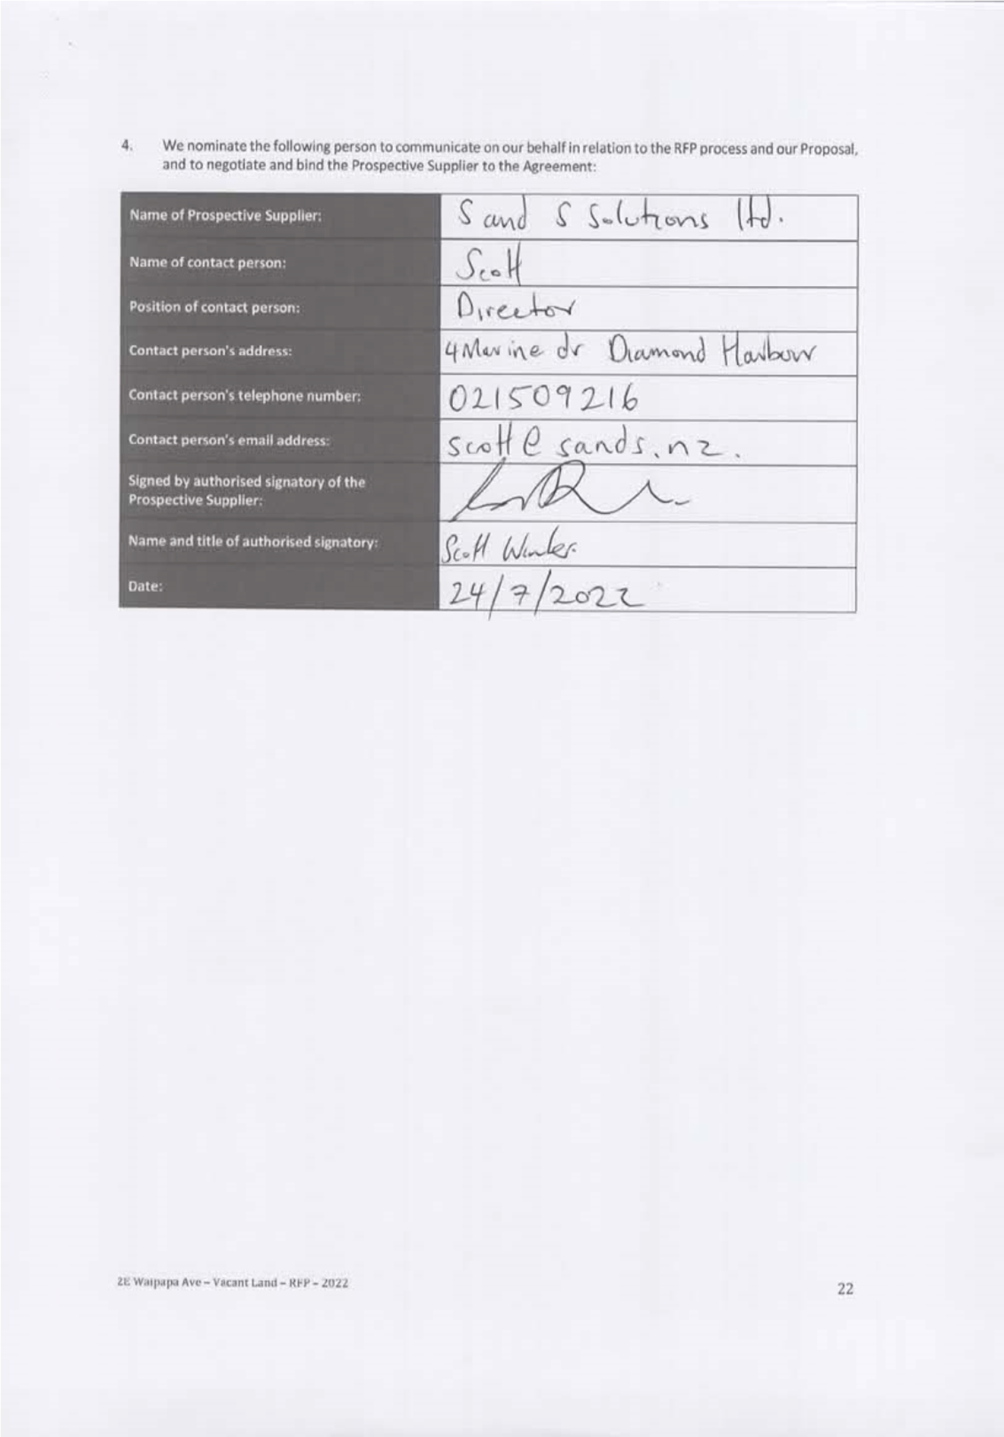 4. We nominate the following person to communicate on our behalf in relation to the RFP process and our Proposal,
and to negotiate and bind the Prospective Supplier to the Agreement:
Name of Prospective Supplier: S and S Solutions ltd.
Name of contact person: Scott
Position of contact person: Director
Contact person's address: 4 Marine dr Diamond Harbour
Contact person's telephone number: 021509216
Contact person's email address: scott@sands.nz.
Signed by authorised signatory of the
Prospective Supplier:
Name and title of authorised signatory: Scott
Date: 24/7/2022
Waipapa Ave – Vacant Land – RFP – 2022
22